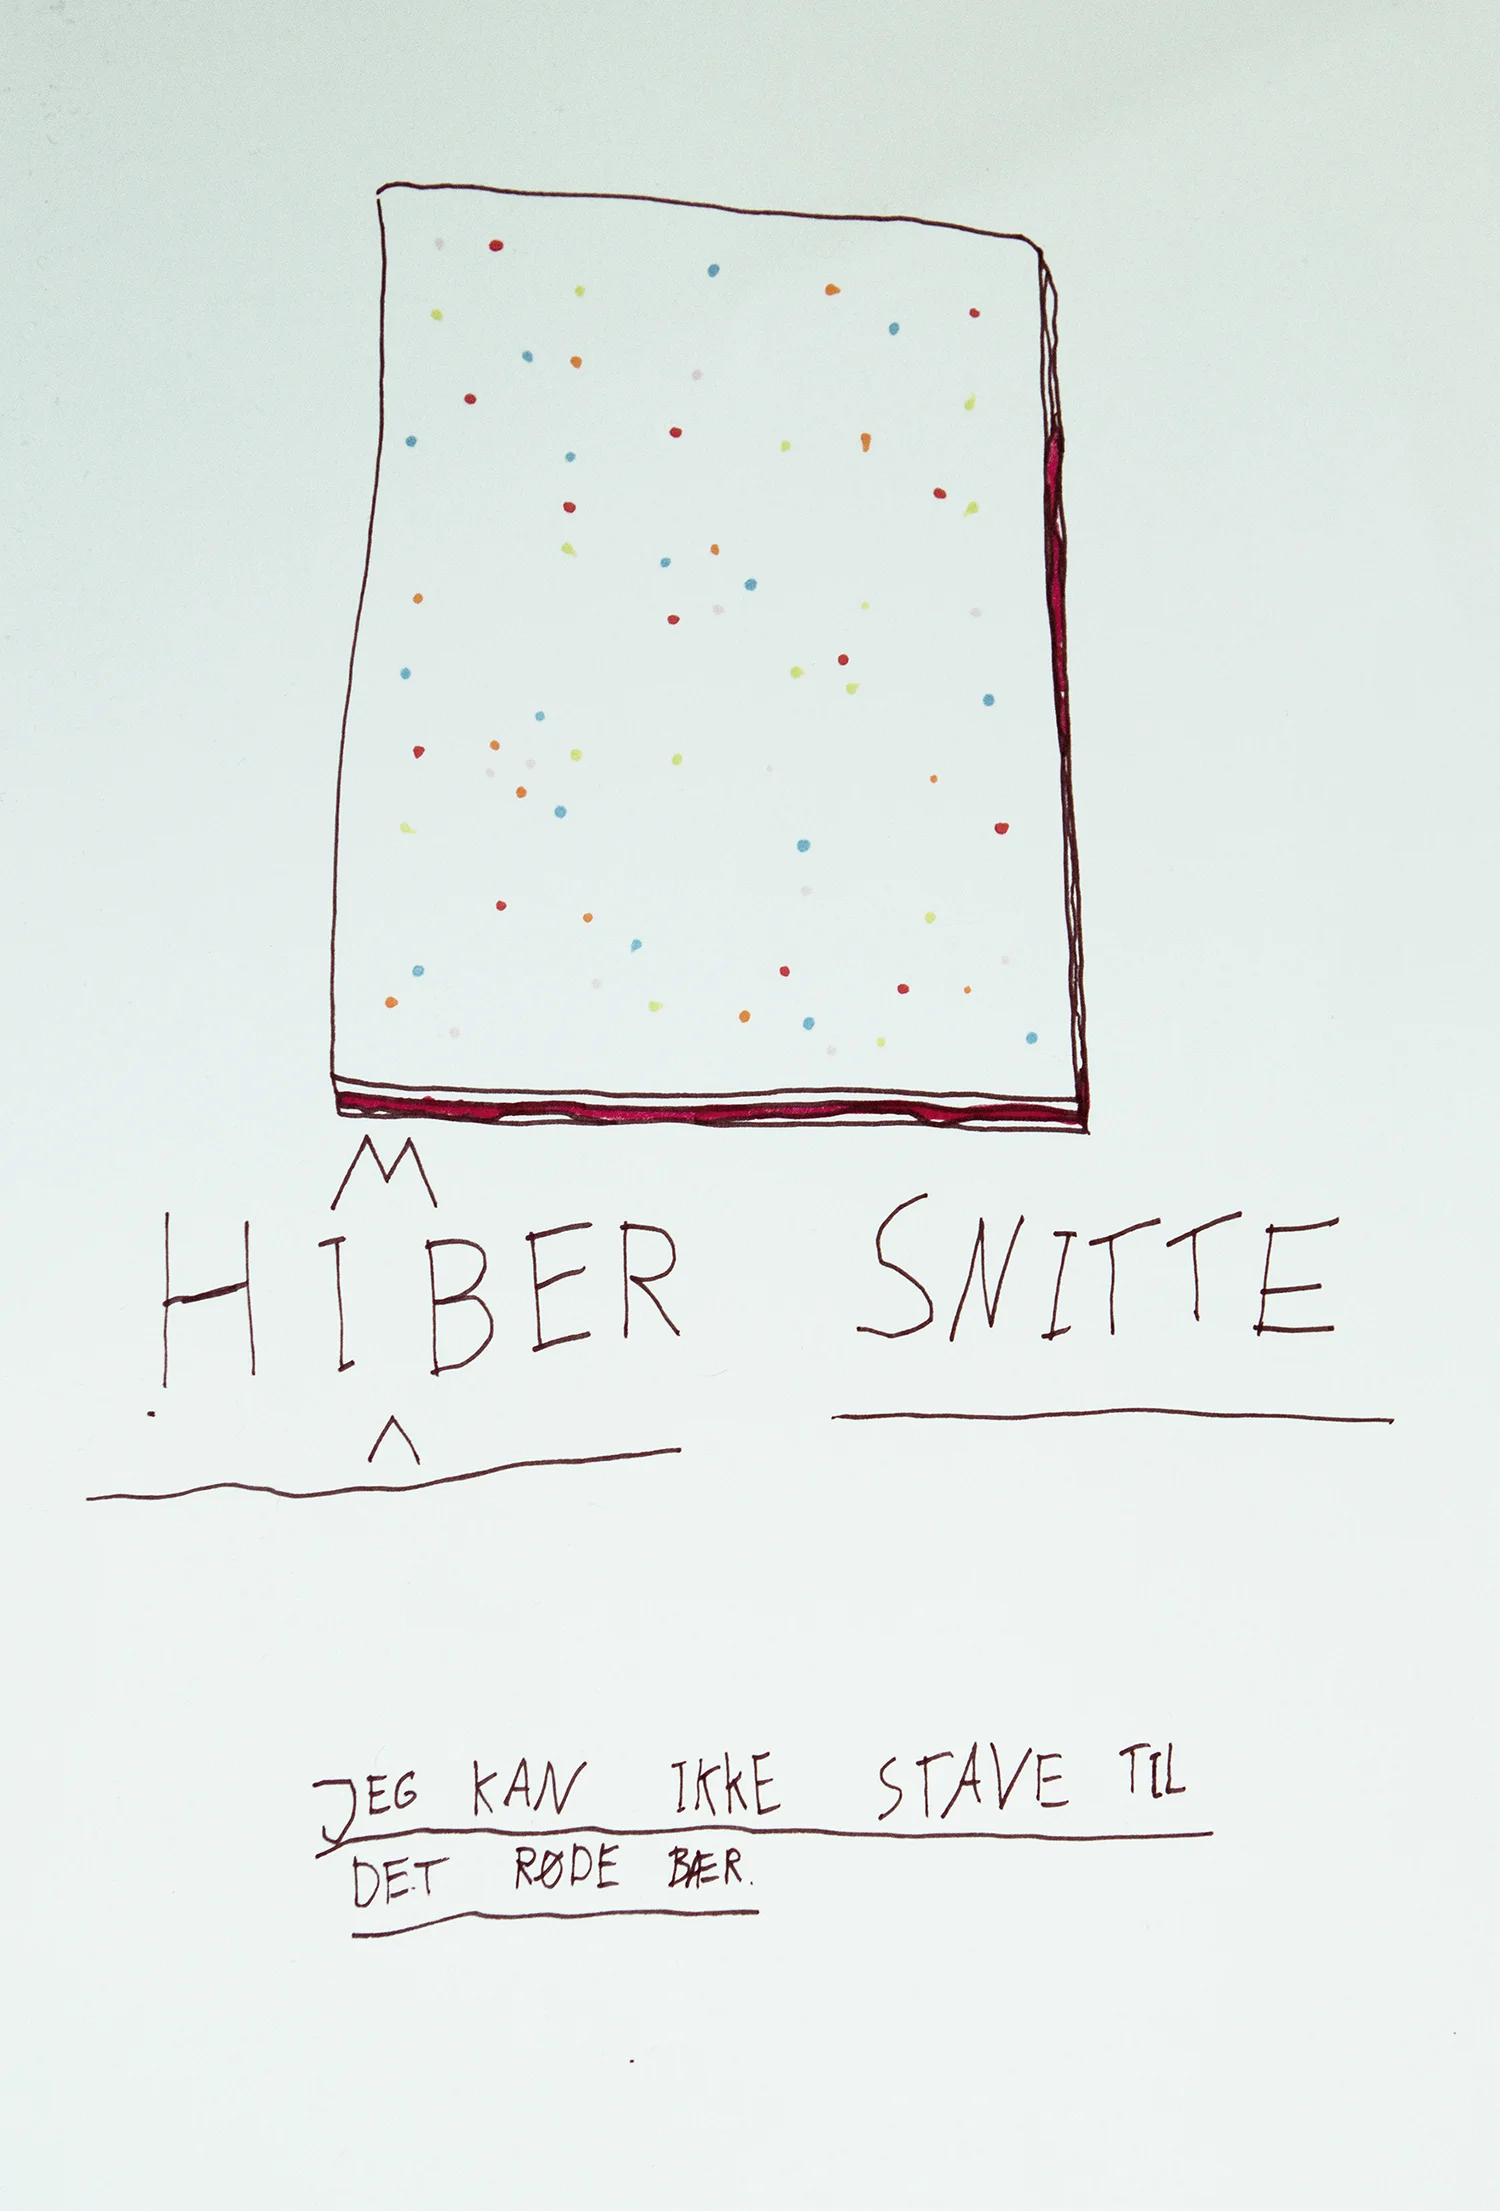 HIMBER SNITTE
JEG KAN IKKE STAVE TIL
DET RØDE BÆR.